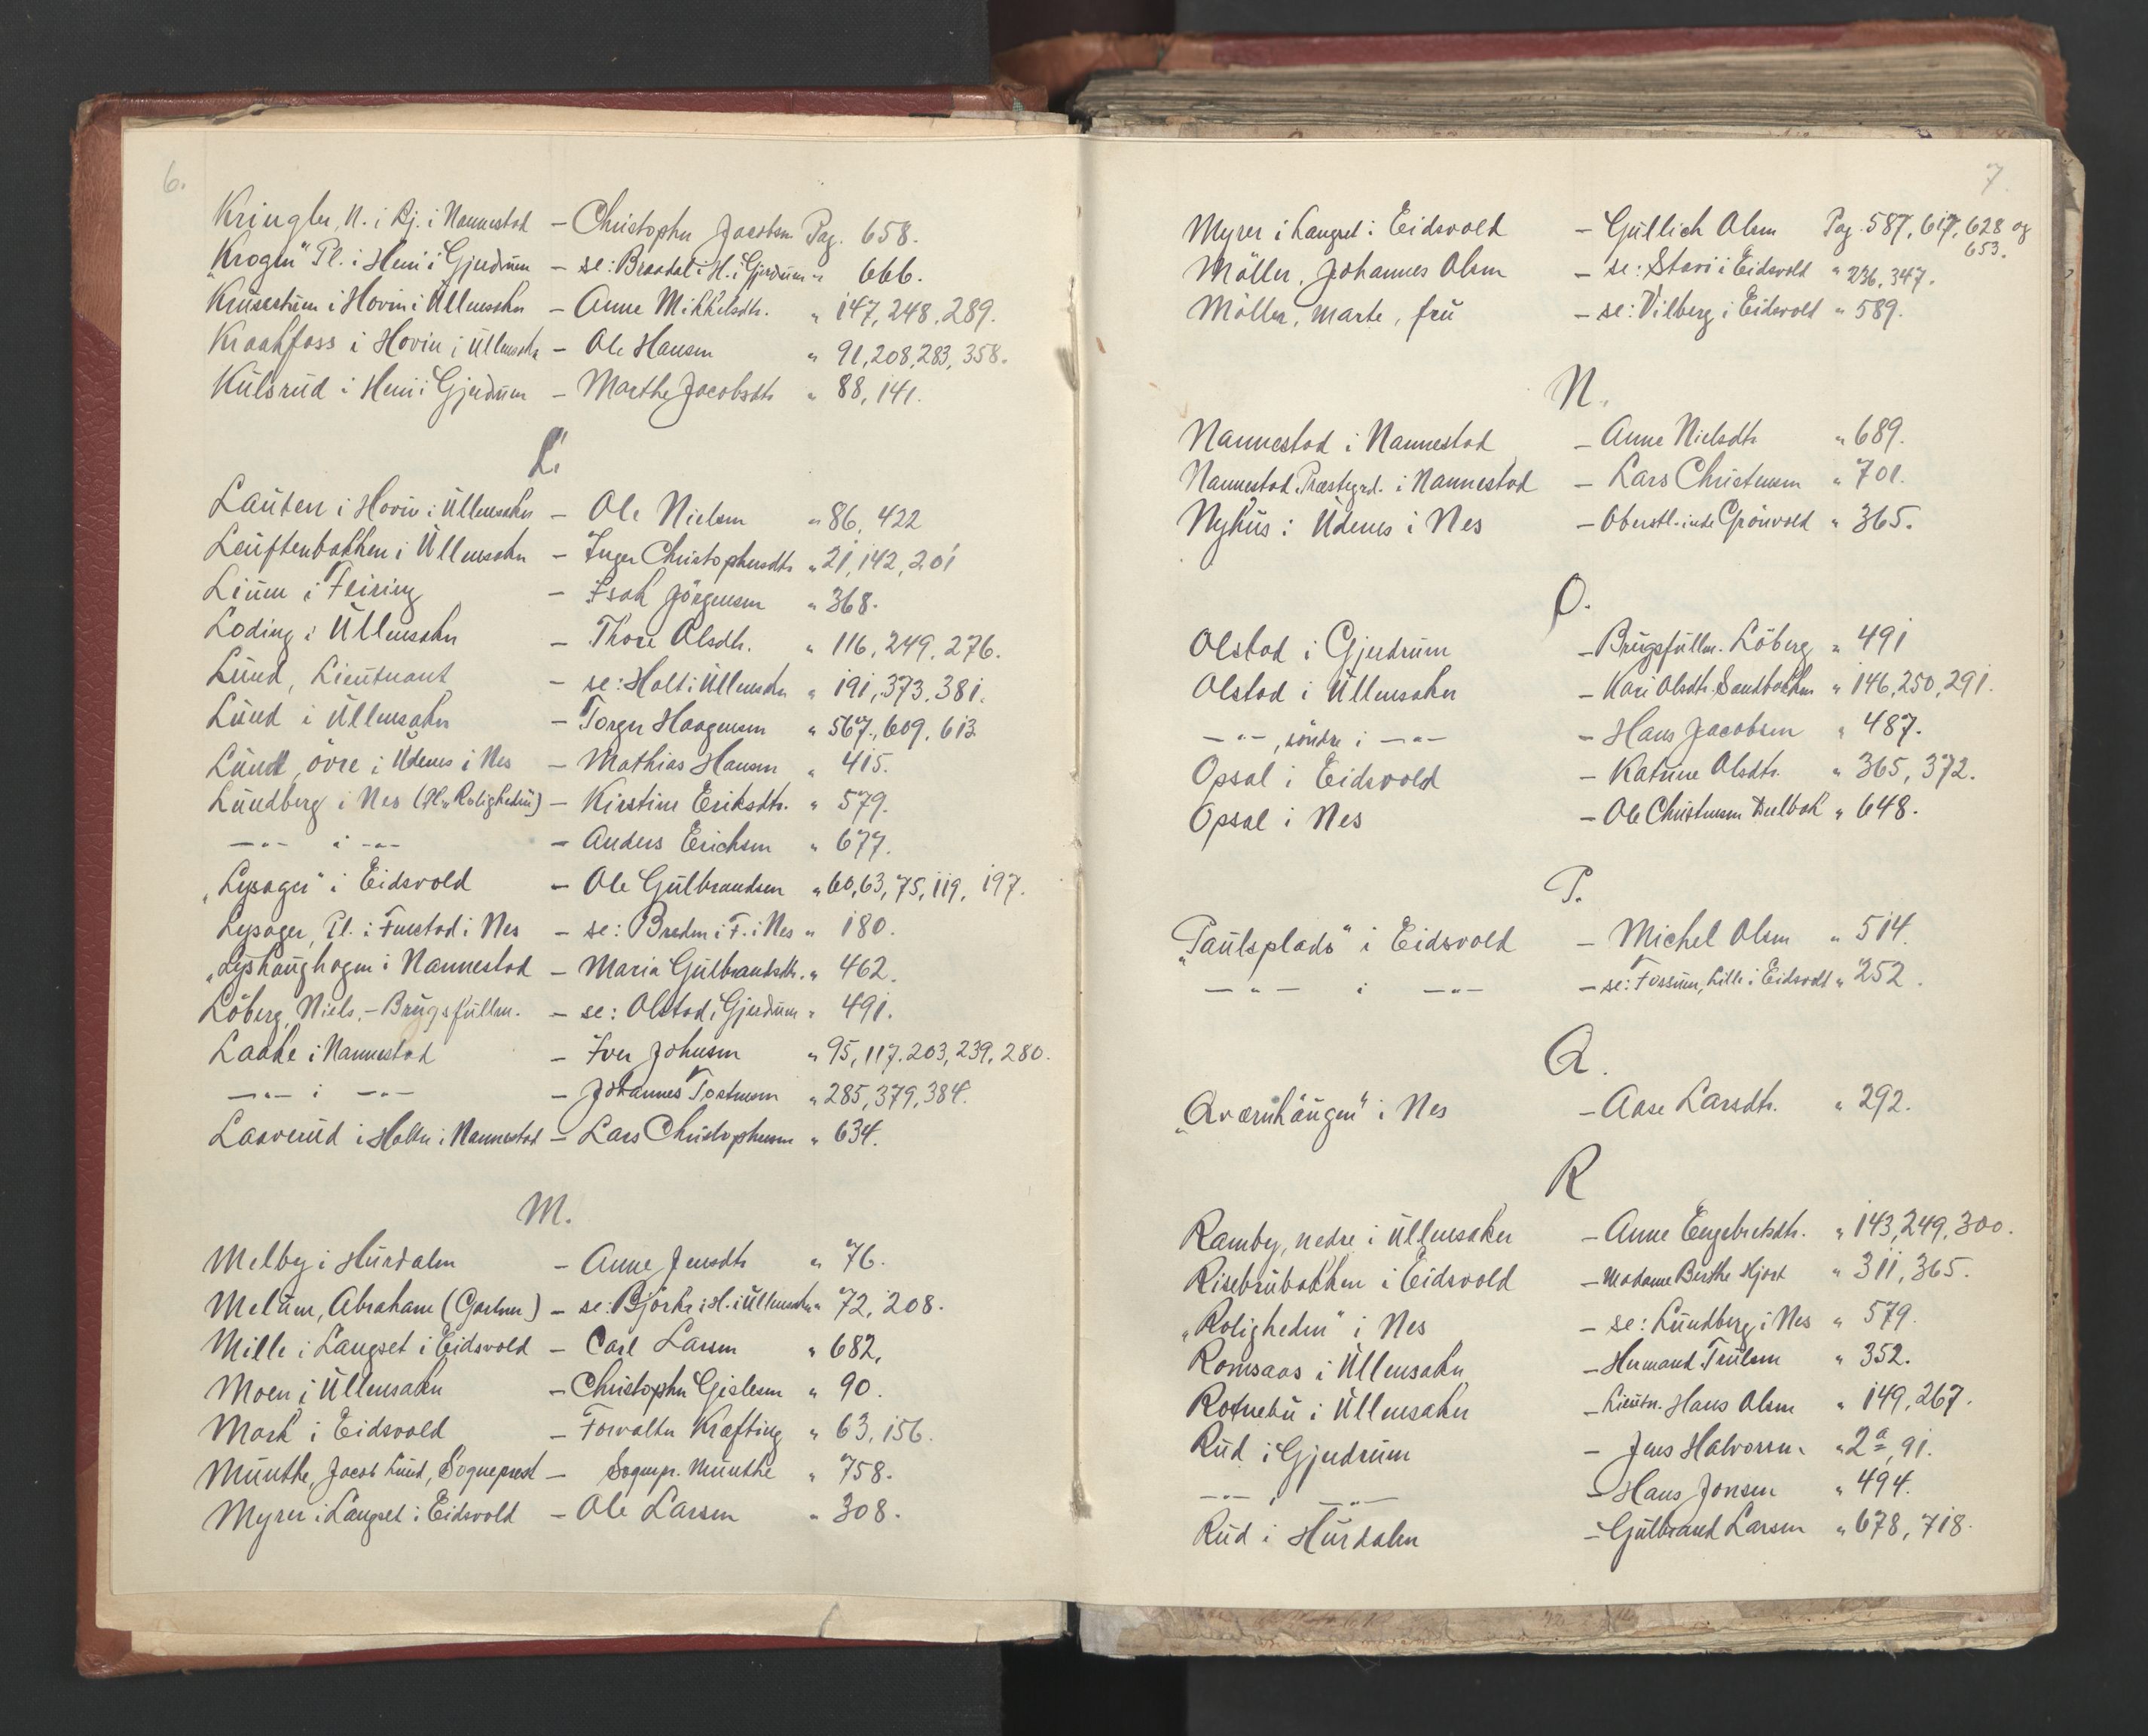 6.
Kringler, N. i Bj. i Nannestad – Christopher Jacobsen Pag. 658.
„Krogen" Pl. i Heni i Gjerdrum – se: Braadal i H. i Gjerdrum „ 666.
Krusestuen i Hovin i Ullensaker – Anne Mikkelsdtr. „ 147, 248, 289.
Kraakfoss i Hovin i Ullensaker – Ole Hansen „ 91, 208, 283, 358.
Kulsrud i Heni i Gjerdrum – Marthe Jacobsdtr „ 88, 141.
L.
Lauten i Hovin i Ullensaker – Ole Nielsen „ 86, 422
Leuftenbakken i Ullensaker – Inger Christophersdtr „ 21, 142, 201
Lium i Feiring – Isak Jörgensen „ 368.
Loding i Ullensaker – Thore Olsdtr. „ 116, 249, 276.
Lund, Lieutnant – se: Holt i Ullensaker „ 191, 373, 381.
Lund i Ullensaker – Torger Haagensen „ 567, 609, 613
Lund, övre i Udenes i Nes – Mathias Hansen „ 415.
Lundberg i Nes (Pl. „Roligheden) – Kirstine Eriksdtr. „ 579.
–„– i –„– – Anders Erichsen „ 677.
„Lysager" i Eidsvold – Ole Gulbrandsen „ 60, 63, 75, 119, 197.
Lysager, Pl. i Fenstad i Nes – se: Breden i F. i Nes „ 180.
„Lyshaughagen i Nannestad – Maria Gulbrandsdtr. „ 462.
Löberg, Niels, – Brugsfuldm. – se: Olstad i Gjerdrum „ 491.
Laake i Nannestad – Iver Johnsen „ 95, 117, 203, 239, 280.
–„– i –„– – Johannes Tostensen „ 285, 379, 384.
Laaverud i Holter i Nannestad – Lars Christophersen „ 634.
M.
Melby i Hurdalen – Anne Jensdtr „ 76.
Melum, Abraham (Gartner) – se: Bjørke i H. i Ullensaker „ 72, 208.
Mille i Langset i Eidsvold – Carl Larsen „ 682.
Moen i Ullensaker – Christopher Gislesen „ 90.
Mork i Eidsvold – Forvalter Krafting „ 63, 156.
Munthe, Jacob Lund, Sogneprest – Sognepr. Munthe „ 758.
Myrer i Langset i Eidsvold – Ole Larsen „ 308.
7.
Myrer i Langset i Eidsvold – Gullich Olsen Pag. 587, 617, 628 og
653.
Möller, Johannes Olsen – se: Stavi i Eidsvold „ 236, 347.
Möller, Marte, fru – se: Vilberg i Eidsvold „ 589.
N.
Nannestad i Nannestad – Anne Nielsdtr „ 689.
Nannestad Præstegrd. i Nannestad – Lars Christensen „ 701.
Nyhus i Udenes i Nes – Oberstl.inde Grönvold „ 365.
O.
Olstad i Gjerdrum – Brugsfuldm. Löberg „ 491
Olstad i Ullensaker – Kari Olsdtr. Sandbakken „ 146, 250, 291.
–„–, söndre i –„– – Hans Jacobsen „ 487.
Opsal i Eidsvold – Katrine Olsdtr. „ 365, 372.
Opsal i Nes – Ole Christensen Deelbak „ 648.
P.
„Paulsplads" i Eidsvold – Michel Olsen „ 514.
–„– i –„– – se: Fossum, Lille i Eidsvold „ 252.
Q.
„Qværnhaugen" i Nes – Aase Larsdtr. „ 292.
R
Ramby, nedre i Ullensaker – Anne Engebretsdtr. „ 143, 249, 300.
Risebrubakken i Eidsvold – Madame Berthe Hjort „ 311, 365.
„Roligheden" i Nes – se: Lundberg i Nes „ 579.
Romsaas i Ullensaker – Hermand Trulsen „ 352.
Rotnebu i Ullensaker – Lieutn. Hans Olsen „ 149, 267.
Rud i Gjerdrum – Jens Halvorsen „ 2a, 91.
–„– i –„– – Hans Jonsen „ 494.
Rud i Hurdalen – Gulbrand Larsen „ 678, 718.